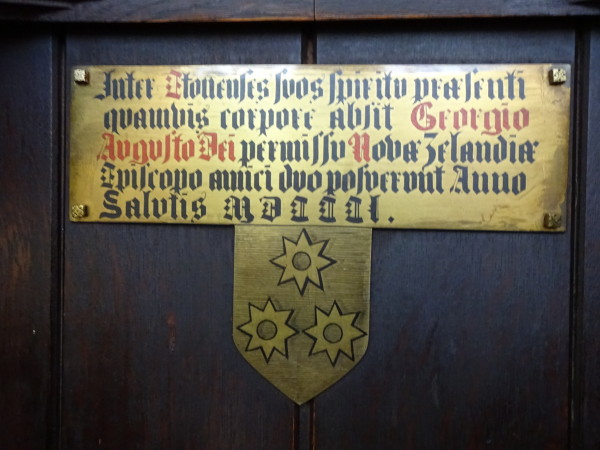 Inter Etonenses svos spiritv præsenti
qvamvis corpore absit Georgio
Avgvsto Dei permissv Novæ Zelandiæ
Episcopo amici dvo posvervnt Anno
Salvtis MDCCCCI.